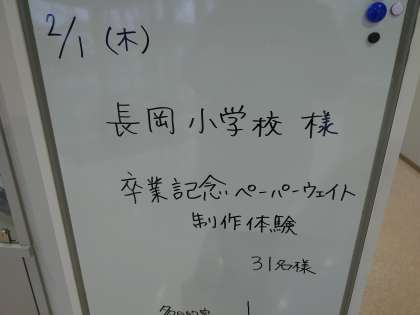 2/1 (木)
長岡小学校 様
卒業記念ペーパーウェイト
制作体験
31名様